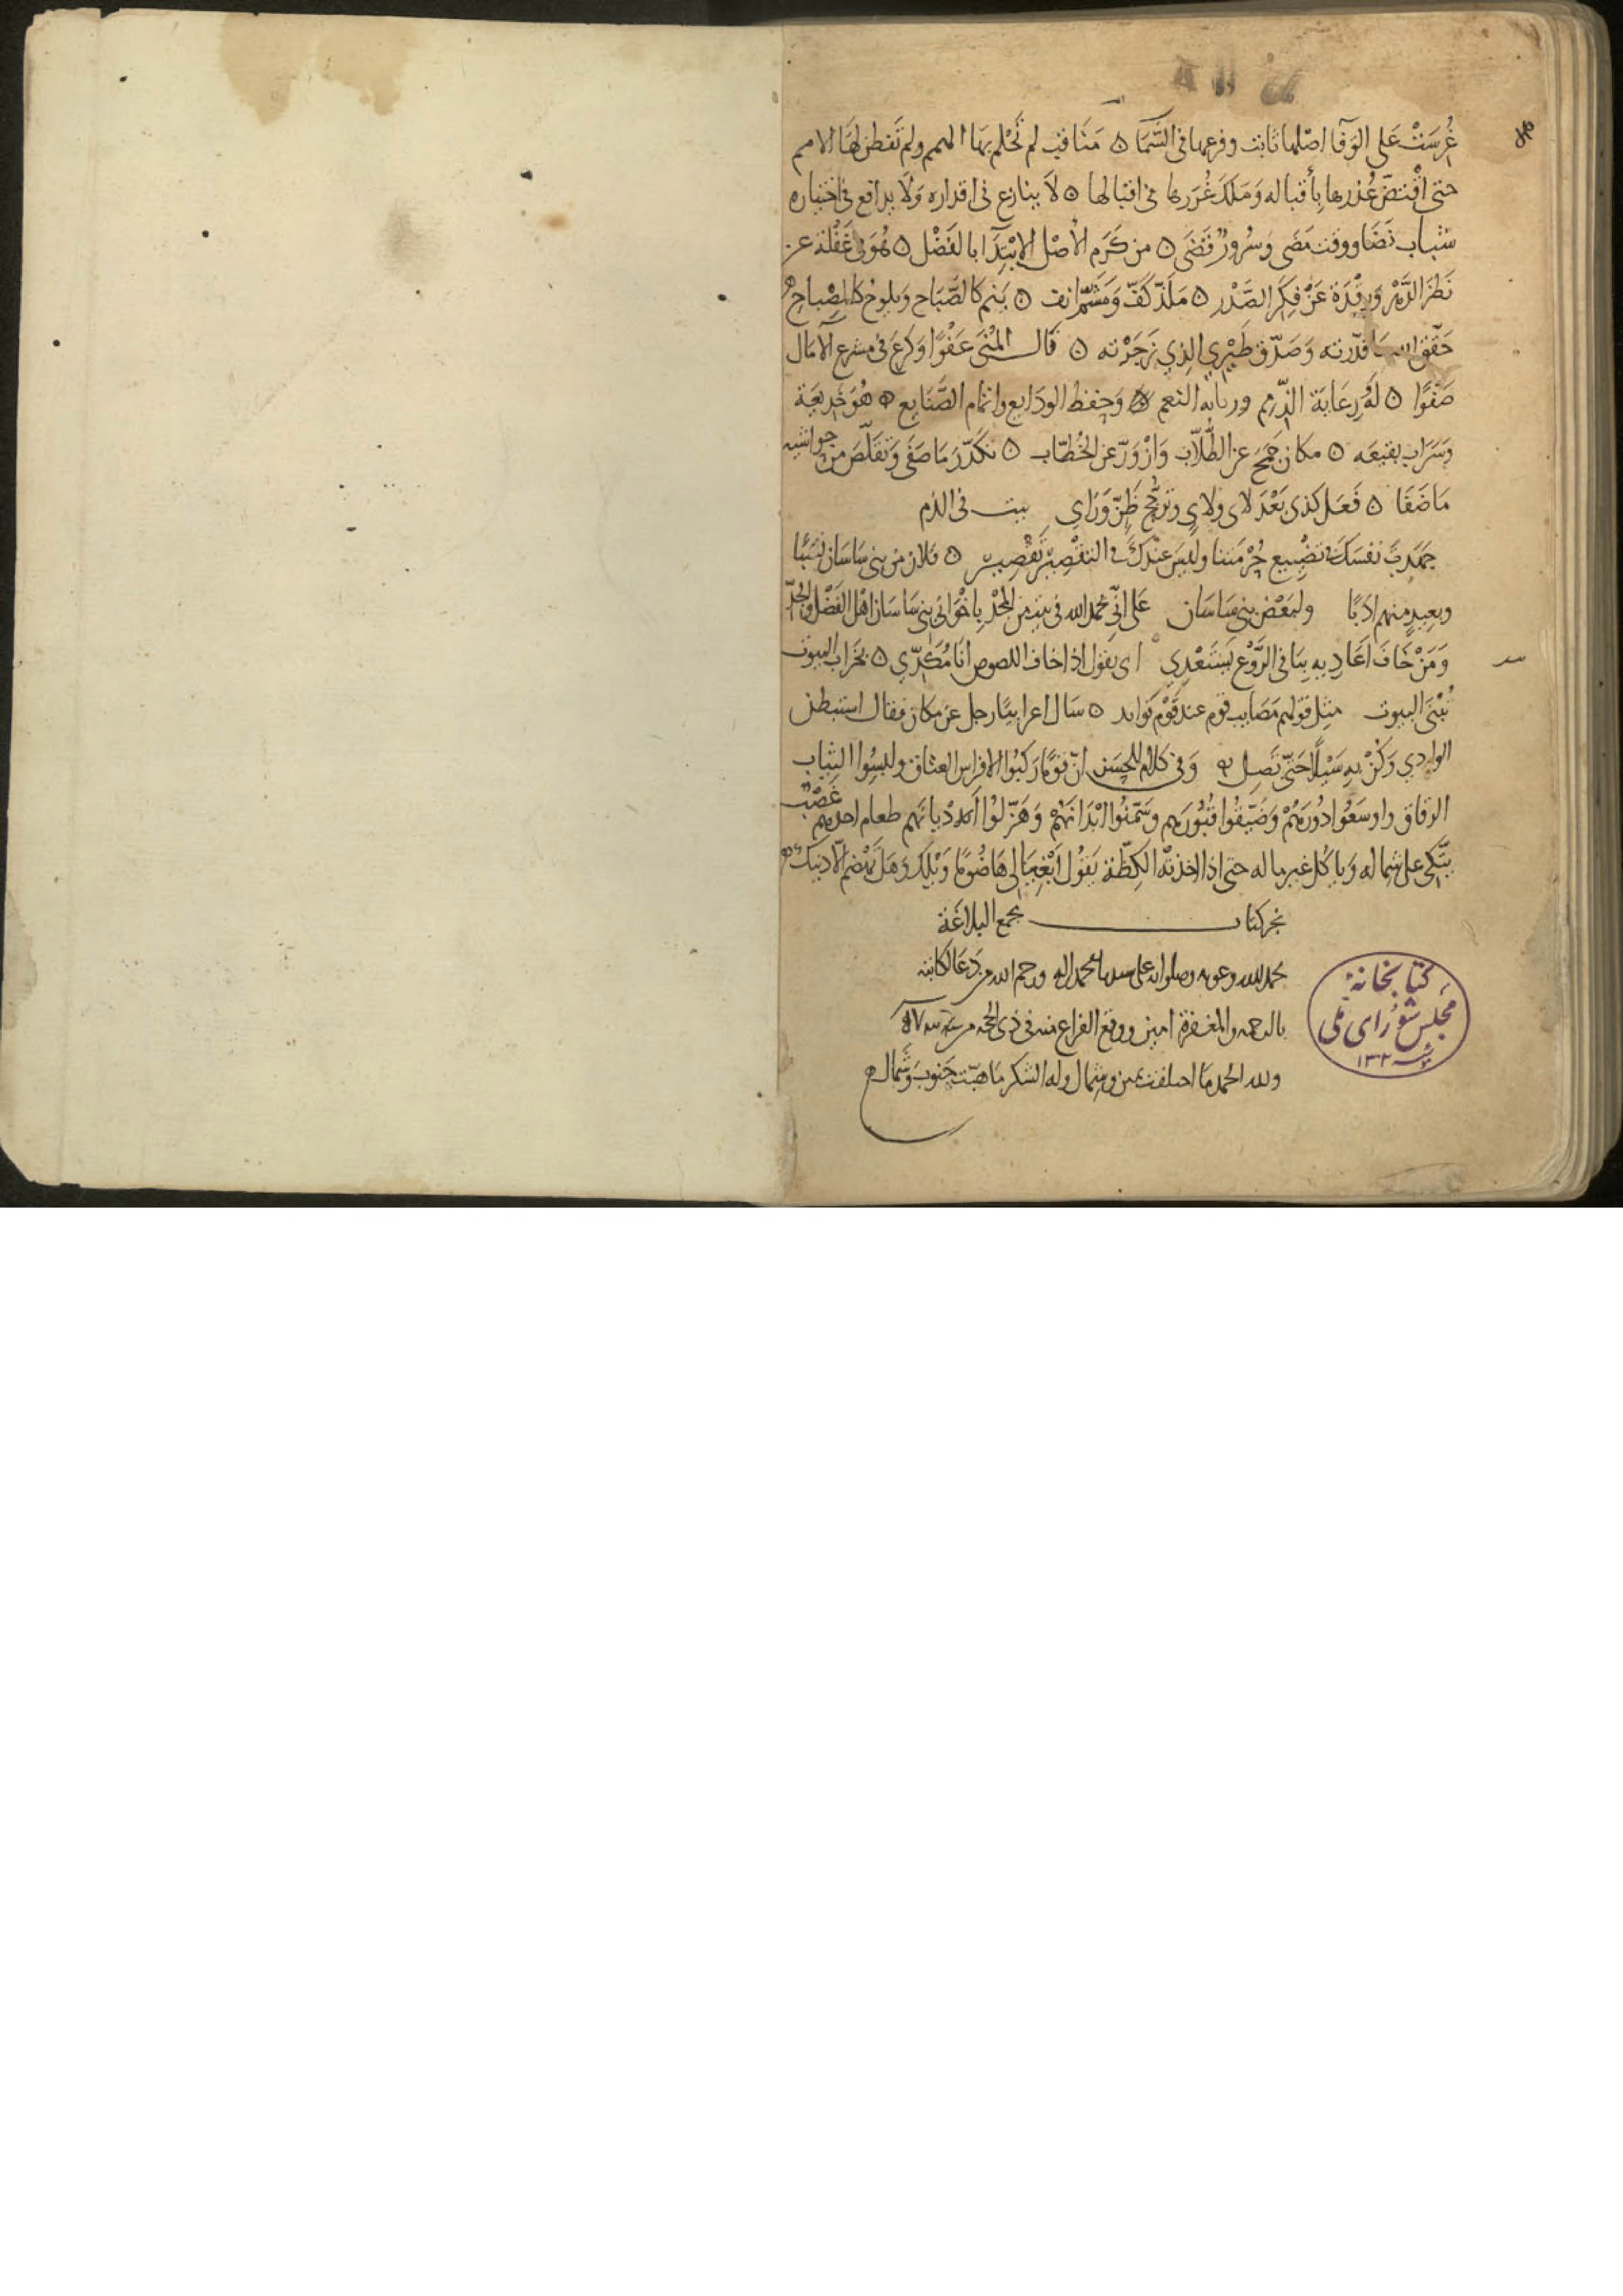 غُرِسَتْ عَلى الوَفَآ اصْلها ثابت وفرعها فى السَّمَا ۝ مَنَاقب لم تَحْلم بهَا الهمم ولم تَفطن لهَا الامم
حتى افْتضّ عُذرها بِأقباله وَمَلكَ غُرَرها فى اقبالها ۝ لاَ ينازع فى اقداره وَلَا يدافع فى اختياره
شباب نَضَا ووقت مَضَى وَسُرورٌ قَضَى ۝ من كَرَم الأصْل الابْتِدَآ بالفَضْل ۝ هُوَ فى غَفْلة عن
نَظَر الدَّهْر وَرقْدَة عَنْ فِكَر الصَّدْر ۝ مَلَذّ كَفّ وَمَشَمّ انف ۝ يَنم كالصَّبَاح وَيلوح كالمِصْباح
حَقّق الله مَا قدّرته وَصَدّق طَيْرِي الذِي زَجَرْته ۝ قال المُنَى عَفْوًا وَكرَعَ فى مشرع الآمَال
صَفْوًا ۝ لَهُ رِعَايَة الذّمم وربابه النعم ۝ وَحِفظ الودَايع واتمام الصَّنَايع ۝ هُوَ خديعَة
وَسَرَاب بقيعَه ۝ مكان جَمَحَ عن الطُّلّاب وَازْوَرّ عن الخُطّاب ۝ تكَدّرَ مَا صَفَى وَتقَلّصَ من حواشيه
مَا ضَفَا ۝ فَعَل كذى بَعْدَ لاىٍ ولاىٍ وترَجُّح ظَنّ وَرَاىٍ بيت فى الذم
جَهَدتَ نَفسَكَ فى تضْيِيع حُرْمَتنا وليسَ عِنْدكَ فى التقْصِيْرِ تَقْصِيرُ ۝ فلان من بنى سَاسَان نَسَبًا
وبعيد منهم ادَبًا ولبَعْض بنى سَاسَان عَلى انّى بحَمد الله فى بيت من المجْدِ بِاخْوَانى بَنى سَاسَان اهْل الفَضْل والجدّ
وَمَنْ خَافَ اعَادِيه بِنَا فى الرَّوْع يَسْتَعْدِي اى يقول اذا خاف اللصوص انَا مُكَدِّي ۝ بخَراب البيوت
تُبْنَى البيوت مثل قولهم مَصَايب قوم عند قَوْم فَوَايد ۝ سَال اعرابيًّا رجل عن مكان فقال استبطن
الوادي وَكُنْ بِهِ سَيْلًا حَتّى تَصِل وَفى كلام للحسَن انّ قومًا رَكبُوا الافراس العتاق ولبِسُوا الثياب
الرقاق واوسَعُوا دُورَهُمْ وَضَيّقُوا قُبُورَهم وسَمّنُوا ابْدَانَهُمْ وَهَزّلُوا اَدْيانَهم طعام احدهم غَصْبٌ
يتّكى على شماله وَياكل غير ماله حتى اذا اخذته الكِظّة يَقُول ابْغِيَا لى هَاضُومًا وَيْلك وَهَل تَهْضم الّا دينك
نجز كتاب مجمع البلاغة
بحمد الله وعونه وصلواته على سيدنا محمد واله ورحم الله من دَعَا لكاتبه
بالرحمه والمغفرة امين ووقع الفراغ منه فى ذى الحجه من سنة
ولله الحمد مَا اختلفت يمين وشمال وله الشكر مَا هَبّت جَنوب وَشَمَال
كتابخانهٔ
مجلس شورای ملی